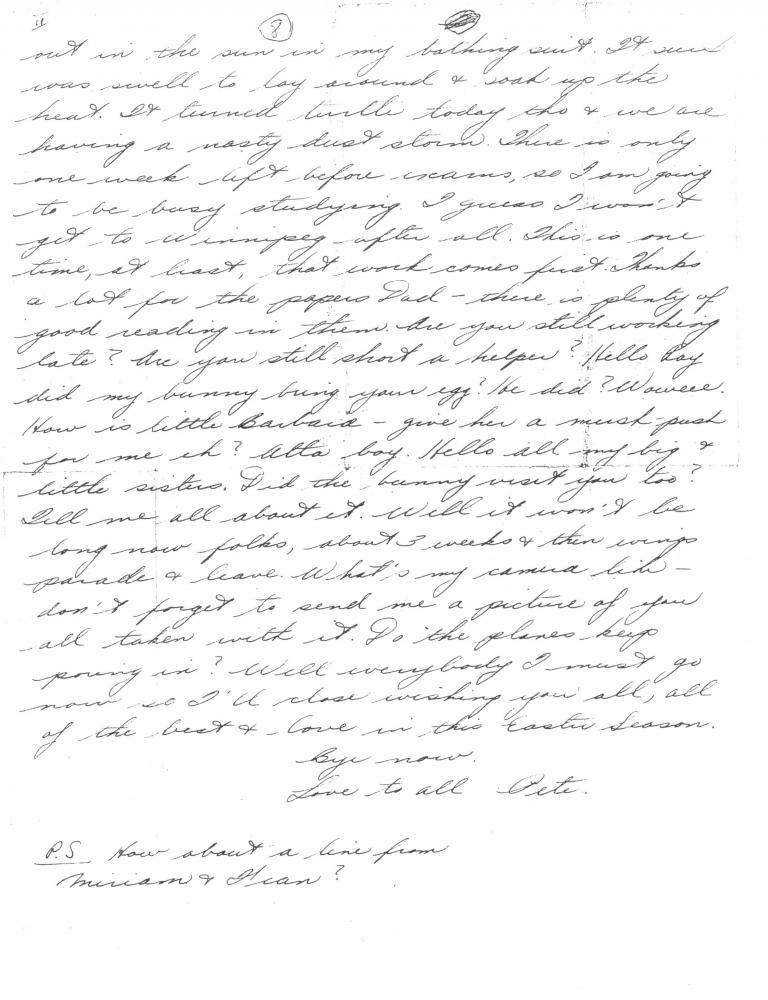 " 8
out in the sun in my bathing suit. It sure
was swell to lay around & soak up the
heat. It turned turtle today tho & we are
having a nasty dust storm. There is only
one week left before exams, so I am going
to be busy studying. I guess I won't
get to Winnipeg after all. This is one
time, at least, that work comes first. Thanks
a lot for the papers Dad – there is plenty of
good reading in them. Are you still working
late? Are you still short a helper? Hello Ray
did my bunny bring your egg? He did? Woweee.
How is little Barbara – give her a mush-push
for me eh? Atta boy. Hello all my big &
little sisters. Did the bunny visit you too?
Tell me all about it. Well it won't be
long now folks, about 3 weeks & then wings
parade & leave. What's my camera like –
don't forget to send me a picture of you
all taken with it. Do the planes keep
pouring in? Well everybody I must go
now so I'll close wishing you all, all
of the best & love in this Easter Season.
Bye now.
Love to all Pete.
P.S How about a line from
Miriam & Fran?